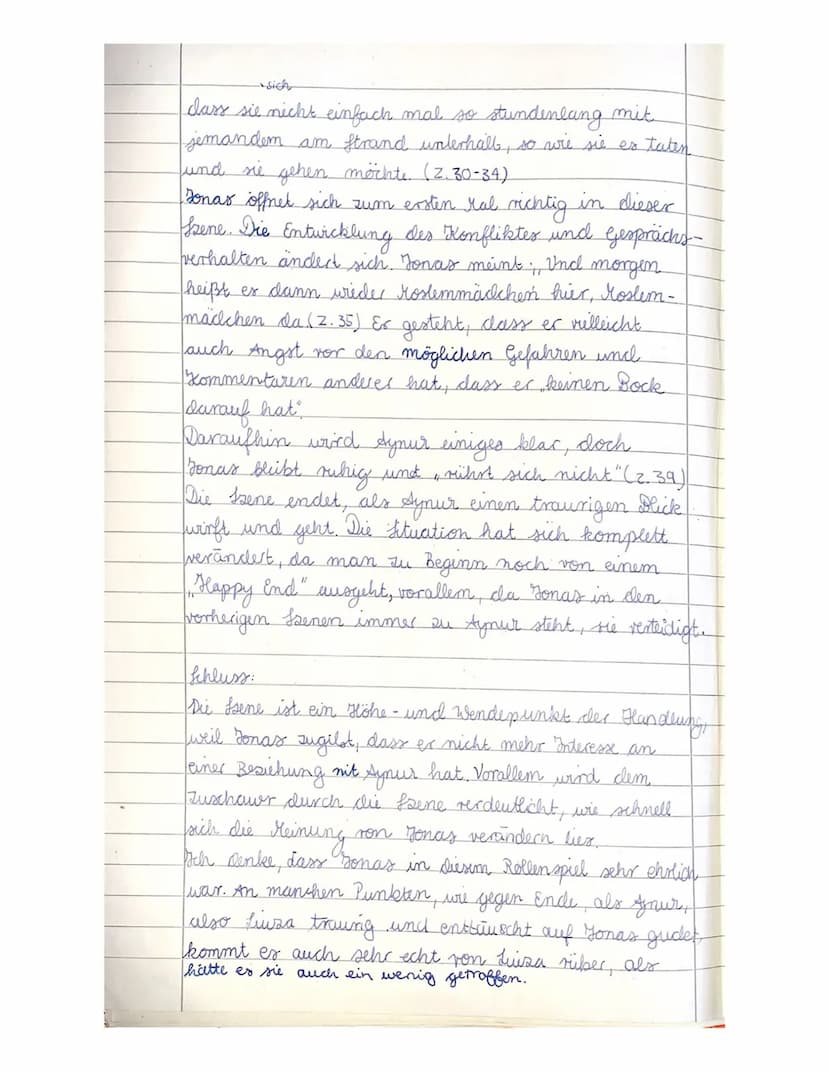 sich
dass sie nicht einfach mal so stundenlang mit
jemandem am Strand unterhält, so wie sie es taten
und sie gehen möchte. (Z.30-34)
Jonas öffnet sich zum ersten Mal richtig in dieser
Szene. Die Entwicklung des Konfliktes und Gesprächs-
verhalten ändert sich. Jonas meint: „Und morgen
heißt es dann wieder Moslemmädchen hier, Moslem-
mädchen da.(Z.35) Er gesteht, dass er villeicht
auch Angst vor den möglichen Gefahren und
Kommentaren anderer hat, dass er „keinen Bock
darauf hat".
Daraufhin wird Aynur einiges klar, doch
Jonas bleibt ruhig und „rührt sich nicht" (Z.39)
Die Szene endet, als Aynur einen traurigen Blick
wirft und geht. Die Situation hat sich komplett
verändert, da man zu Beginn noch von einem
„Happy End" ausgeht, vorallem, da Jonas in den
vorherigen Szenen immer zu Aynur steht, sie verteidigt.
Schluss:
Die Szene ist ein Höhe- und Wendepunkt der Handlung,
weil Jonas zugibt, dass er nicht mehr Interesse an
einer Beziehung mit Aynur hat. Vorallem wird dem
Zuschauer durch die Szene verdeutlicht, wie schnell
sich die Meinung von Jonas verändern lies.
Ich denke, dass Jonas in diesem Rollenspiel sehr ehrlich
war. An manchen Punkten, wie gegen Ende, als Aynur,
also Luiza traurig und enttäuscht auf Jonas gucket,
kommt es auch sehr echt von Luiza rüber, als
hätte es sie auch ein wenig getroffen.